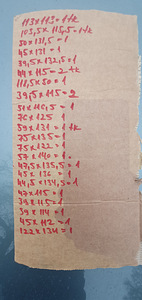 113x113=1+k
103,5x115,5=1+k
50x131,5=1
45x131=1
39,5x132,5=1
44x115=2+k
118,5x80=1
39,5x115=2
51x116,5=1
76x125 1
59x131=1+k
75x135=1
75x122=1
57x140=1
47,5x135,5=1
45x136=1
44,5x134,5=1
47x115=1
39x115=1
39x114=1
45x112=1
122x134=1